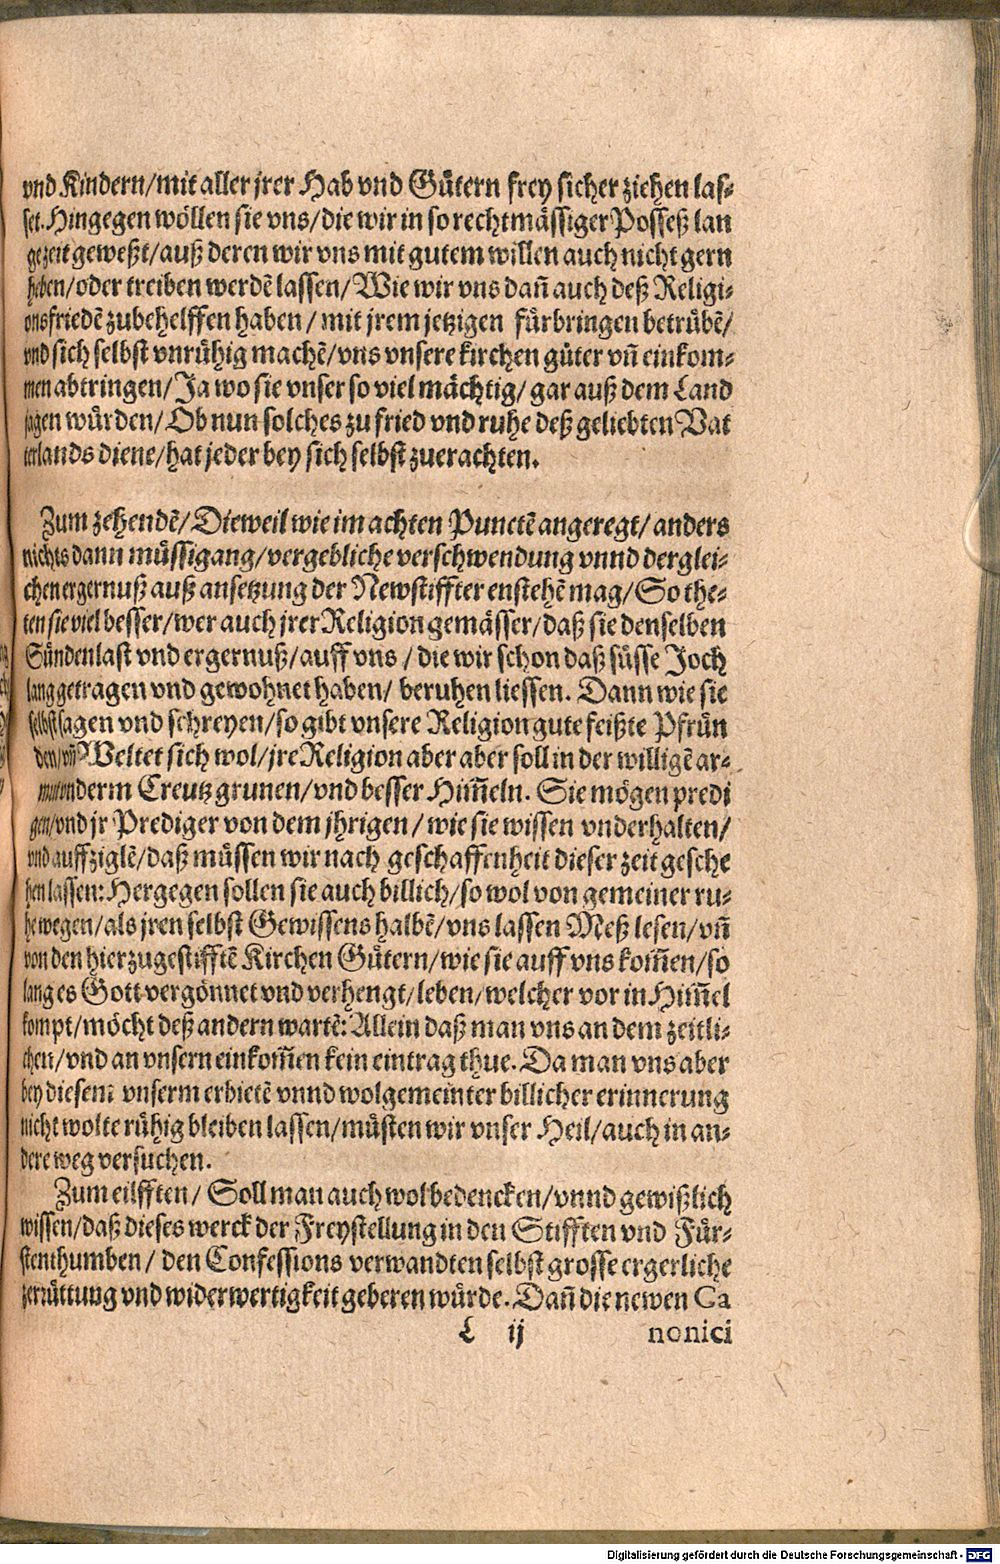 vnd Kindern/mit aller jrer Hab vnd Gütern frey sicher ziehen las-
set. Hingegen wöllen sie vns/die wir in so rechtmässiger Posseß lan
ge zeit geweßt/auß deren wir vns mit gutem willen auch nicht gern
heben/oder treiben werdē lassen/Wie wir vns dañ auch deß Religi-
onsfriedē zubehelffen haben / mit jrem jetzigen fürbringen betrübē/
vnd sich selbst vnrühig machē/vns vnsere kirchen güter vñ einkom-
men abtringen/Ja wo sie vnser so viel mächtig/gar auß dem Land
jagen würden/Ob nun solches zu fried vnd ruhe deß geliebten Vat
terlands diene/hat jeder bey sich selbst zuerachten.
Zum zehendē/Dieweil wie im achten Punctē angeregt/anders
nichts dann müssigang/vergebliche verschwendung vnnd derglei-
chen ergernuß auß ansetzung der Newstiffter enstehē mag/So the-
ten sie viel besser/wer auch jrer Religion gemässer/daß sie denselben
Sündenlast vnd ergernuß/auff vns / die wir schon daß süsse Joch
lang getragen vnd gewohnet haben/ beruhen liessen. Dann wie sie
selbst sagen vnd schreyen/so gibt vnsere Religion gute feißte Pfrün
den/vñ Weltet sich wol/jre Religion aber aber soll in der willigē ar-
mut vnderm Creutz grunen/vnd besser Him̄eln. Sie mögen predi
gen/vnd jr Prediger von dem jhrigen / wie sie wissen vnderhalten/
vnd auffziglē/daß müssen wir nach geschaffenheit dieser zeit gesche
hen lassen: Hergegen sollen sie auch billich/so wol von gemeiner ru-
he wegen/als jren selbst Gewissens halbē/vns lassen Meß lesen/vñ
von den hierzu gestifftē Kirchen Gütern/wie sie auff vns kom̄en/so
lang es Gott vergönnet vnd verhengt/leben/welcher vor in Him̄el
kompt/möcht deß andern wartē: Allein daß man vns an dem zeitli-
chen/vnd an vnsern einkom̄en kein eintrag thue. Da man vns aber
bey diesem vnserm erbietē vnnd wolgemeinter billicher erinnerung
nicht wolte rühig bleiben lassen/müsten wir vnser Heil/auch in an-
dere weg versuchen.
Zum eilfften/ Soll man auch wol bedencken/vnnd gewißlich
wissen/daß dieses werck der Freystellung in den Stifften vnd Für-
stenthumben / den Confessions verwandten selbst grosse ergerliche
zerrüttung vnd widerwertigkeit geberen würde. Dañ die newen Ca
L ij nonici
Digitalisierung gefördert durch die Deutsche Forschungsgemeinschaft - DFG